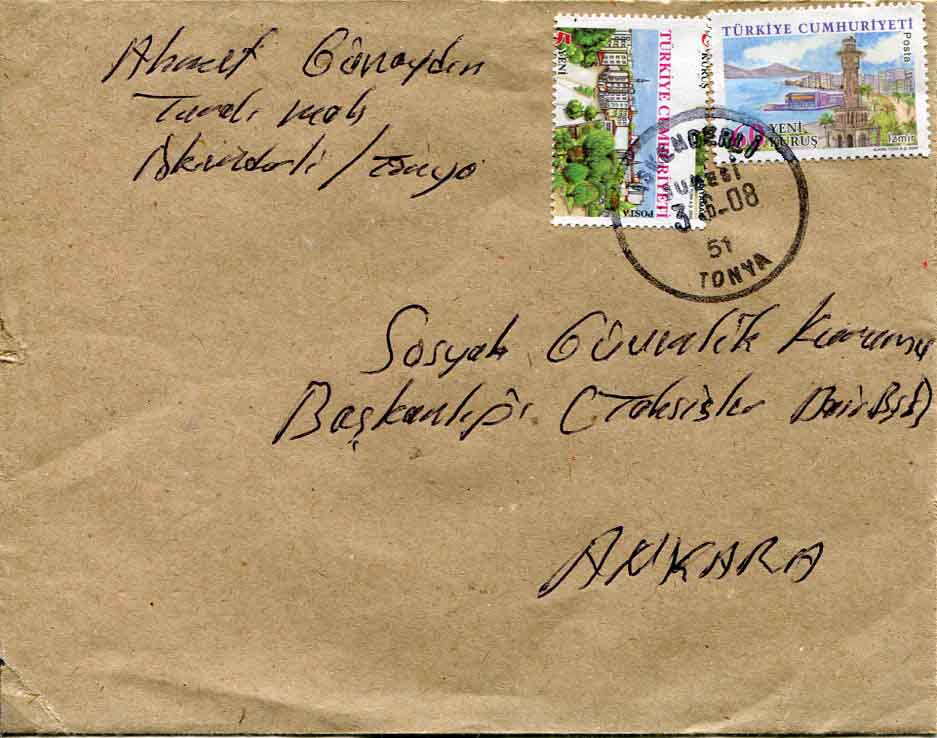 Ahmet Günaydın
Turalı mah
İskenderli / Tonya
TÜRKİYE CUMHURİYETİ
YENİ
KURUŞ
POSTA
TÜRKİYE CUMHURİYETİ
Posta
60 YENİ
KURUŞ
İzmir
İSKENDERLİ
ŞUBESİ
08
51
TONYA
Sosyal Güvenlik Kurumu
Başkanlığı (Tahsisler Dair Bşk)
ANKARA